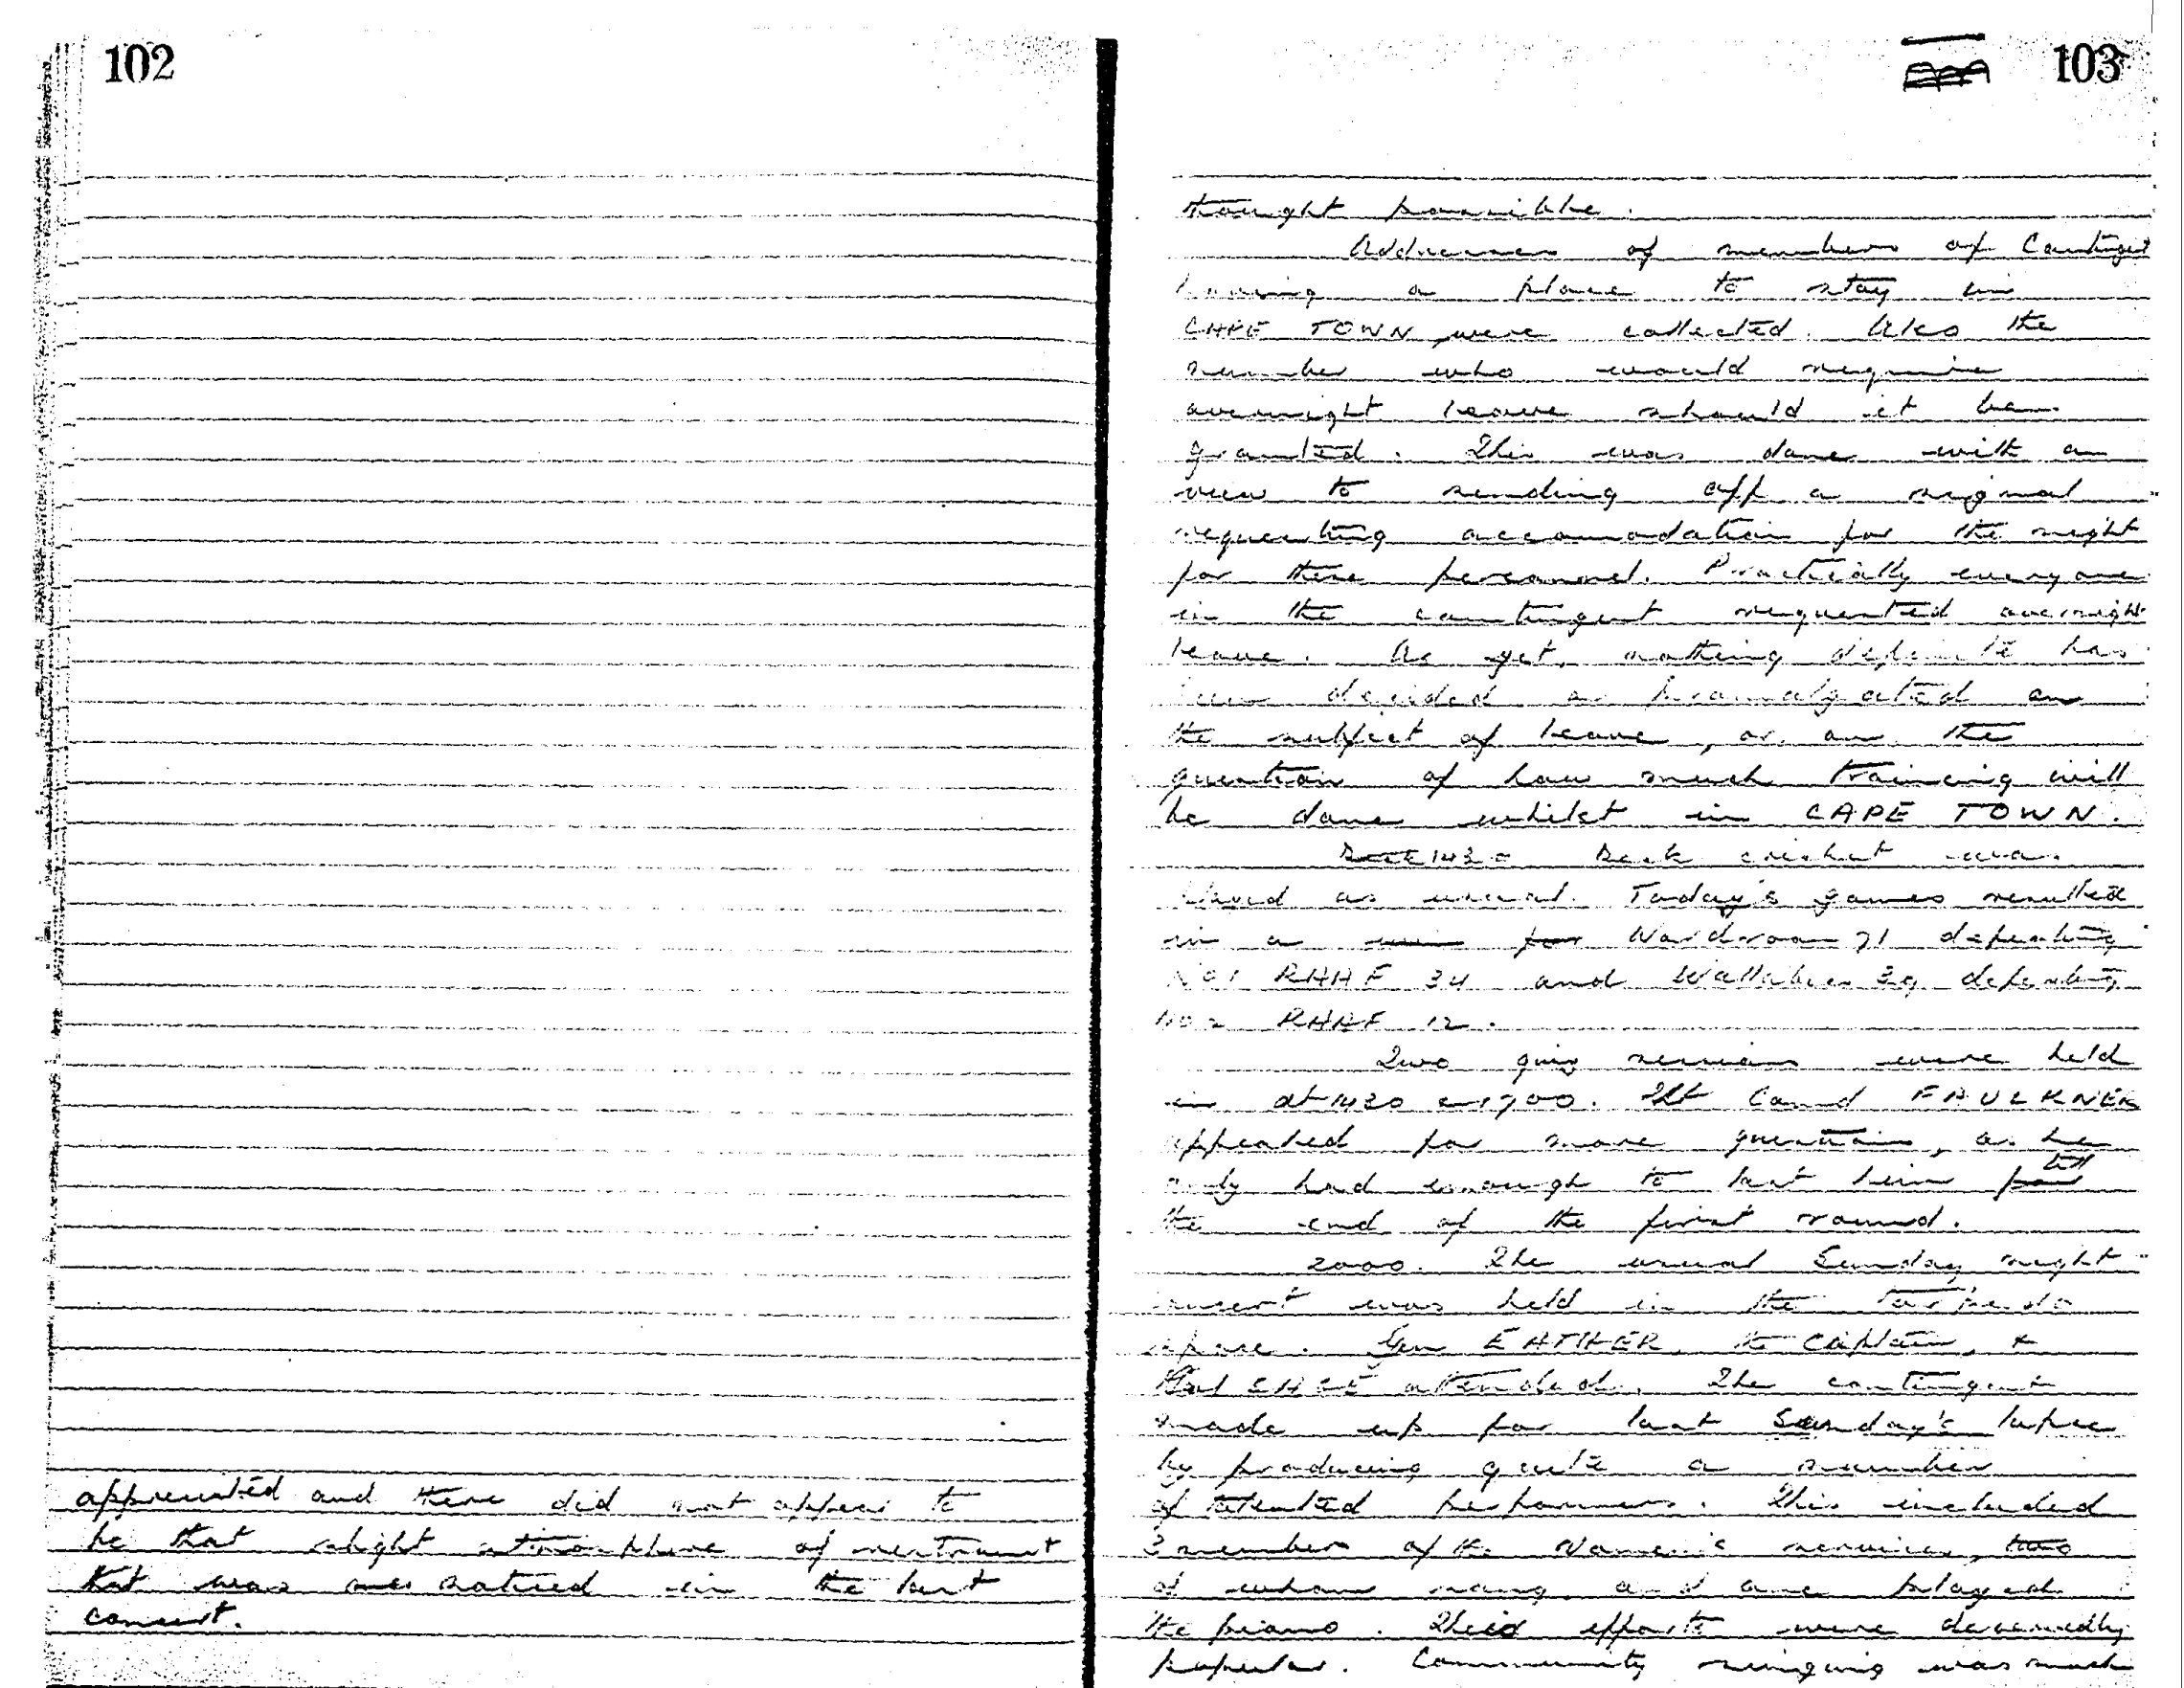 102
appreciated and there did not appear to
be that slight atmosphere of restraint
that was noticed in the last
concert.
103
thought possible.
Addresses of members of Contingent
having a place to stay in
CAPE TOWN were collected. Also the
number who would require
overnight leave should it be
granted. This was done with a
view to sending off a signal
requesting accomodation for the night
for these personnel. Practically everyone
in the contingent requested overnight
leave. As yet, nothing definite has
been decided or promulgated on
the subject of leave, or on the
question of how much training will
be done whilst in CAPE TOWN.
1430 Deck cricket was
played as usual. Today's games resulted
in a win for Wardroom 71 defeating
No 1 RAAF 34 and Wallabies 39 defeating
No 2 RAAF 12.
Two quiz sessions were held
in at 1430 & 1700. Lt Cand FAULKNER
appealed for more questions, as he
only had enough to last him for till
the end of the first round.
2000. The usual Sunday night
concert was held in the torpedo
space. Gen EATHER, the Captain, &
attended. The contingent
made up for last Sunday's lapse
by producing quite a number
of talented performers. This included
3 members of the Women's services, two
of whom sang, and one played
the piano. Their efforts were deservedly
popular. Community singing was much